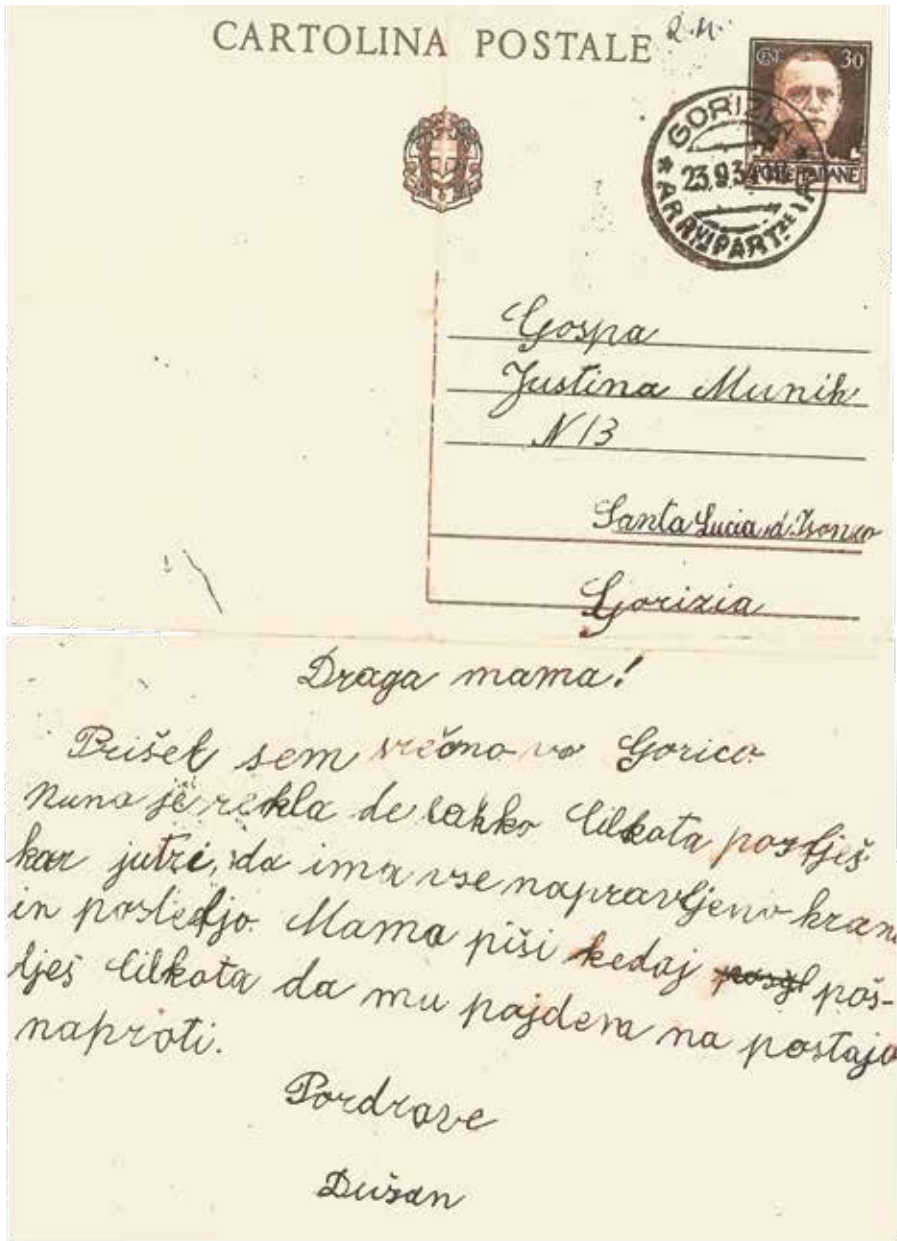 CARTOLINA POSTALE
CENT 30
POSTE ITALIANE
GORIZIA
23.9.34
ARRIVI PART.ZE
Gospa
Justina Munih
N 13
Santa Lucia d'Isonzo
Gorizia
Draga mama!
Prišel sem srečno vo Gorico
Nuna je rekla de lahko Cilkota pošlješ
kar jutri, da ima vse napravljeno hrano
in posteljo. Mama piši kedaj poš-
lješ Cilkota da mu pajdem na postajo
naproti.
Pordrave
Dušan